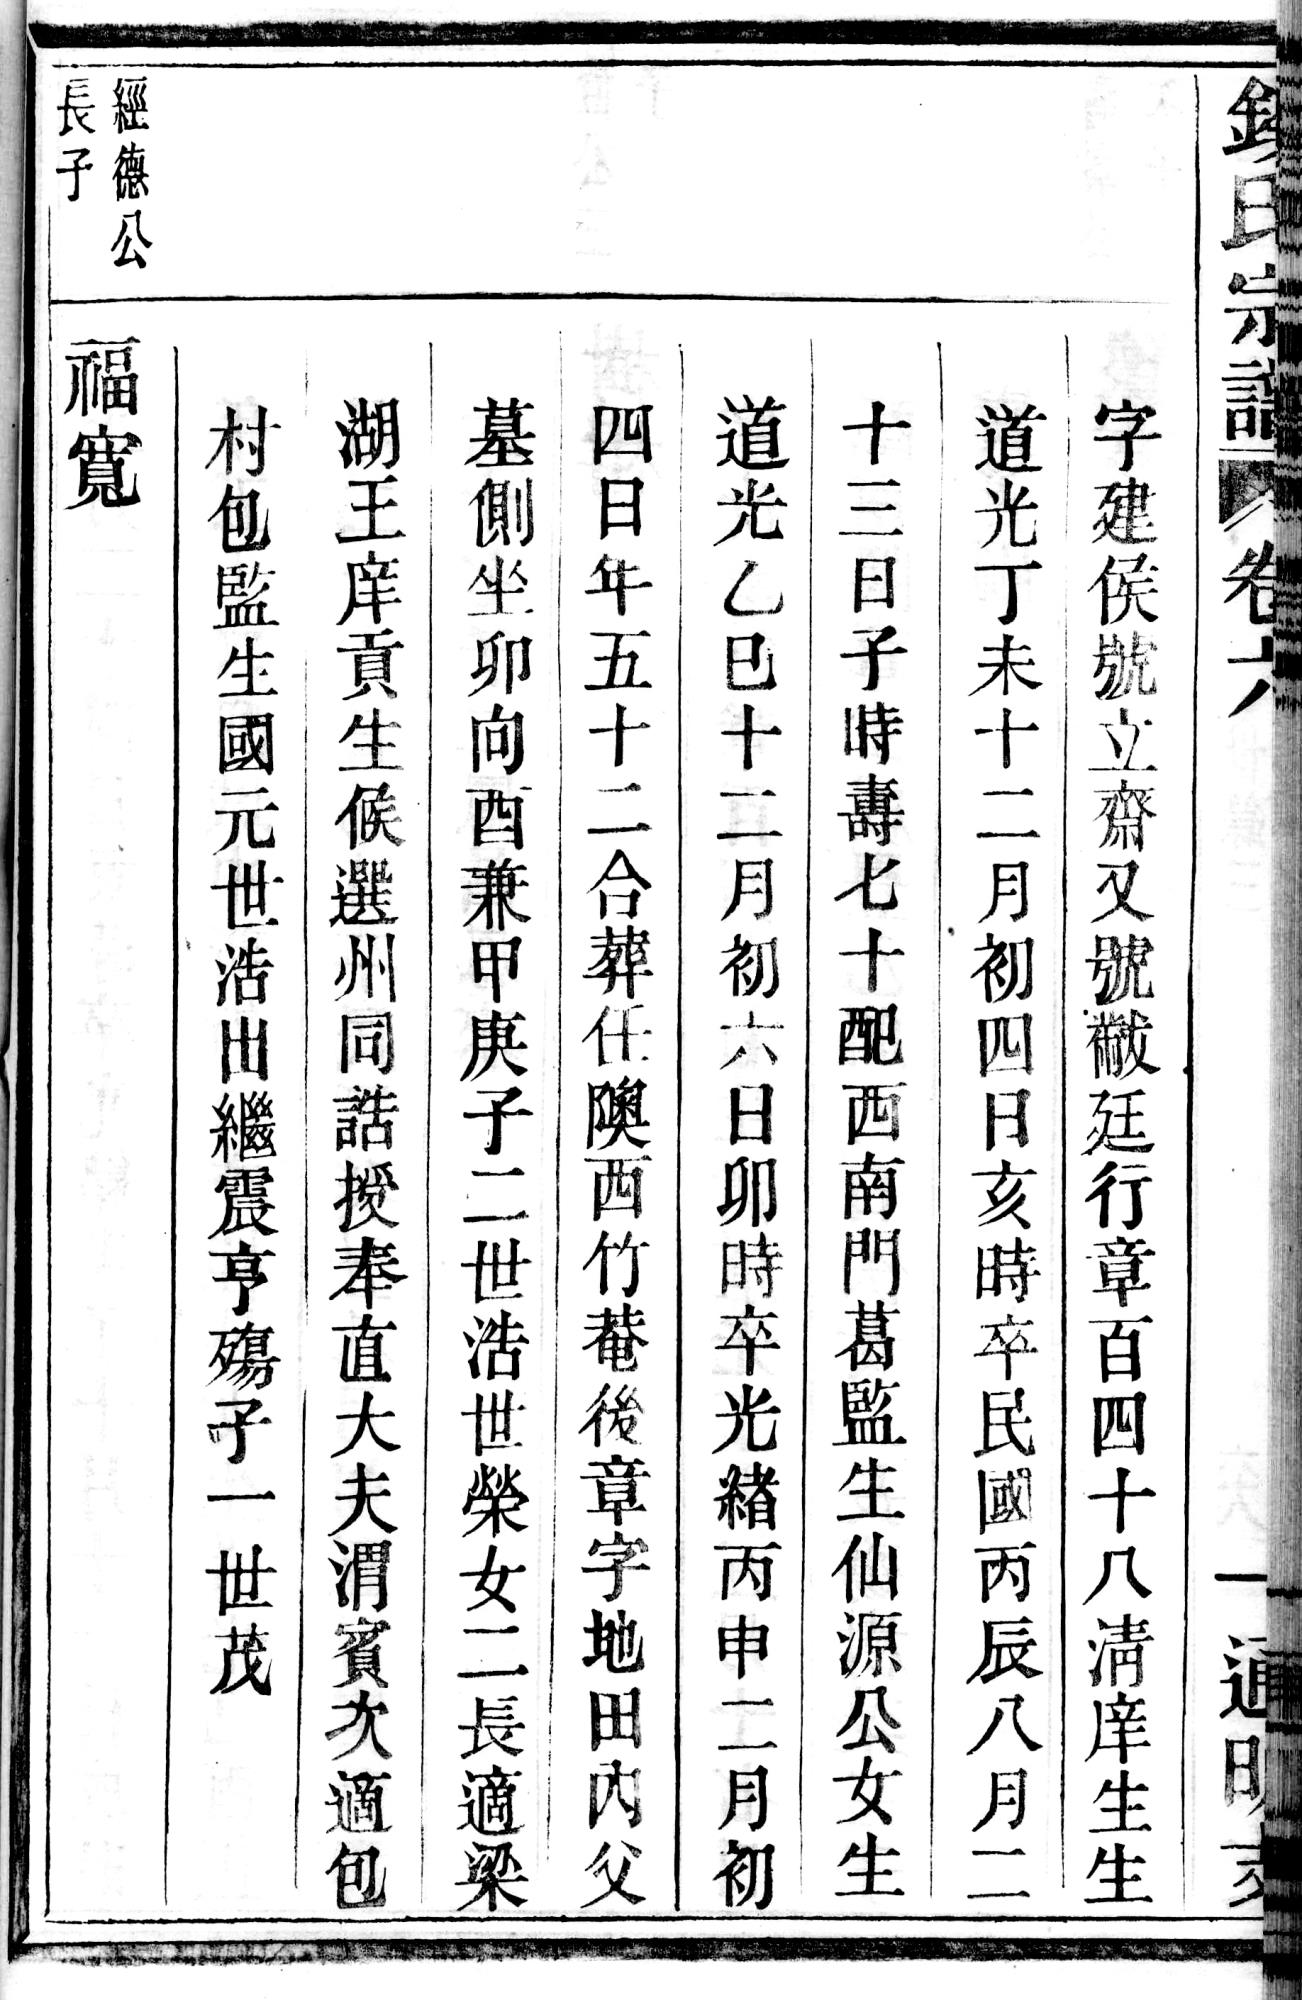 氏宗譜 卷六 一 通明支
字建侯號立齋又號黻廷行章百四十八清庠生生
道光丁未十二月初四日亥時卒民國丙辰八月二
十三日子時壽七十配西南門葛監生仙源公女生
道光乙巳十二月初六日卯時卒光緒丙申二月初
四日年五十二合葬任隩西竹菴後章字地田內父
墓側坐卯向酉兼甲庚子二世浩世榮女二長適梁
湖王庠貢生候選州同誥授奉直大夫渭賓次適包
村包監生國元世浩出繼震亨殤子一世茂
經德公
長子
福寬